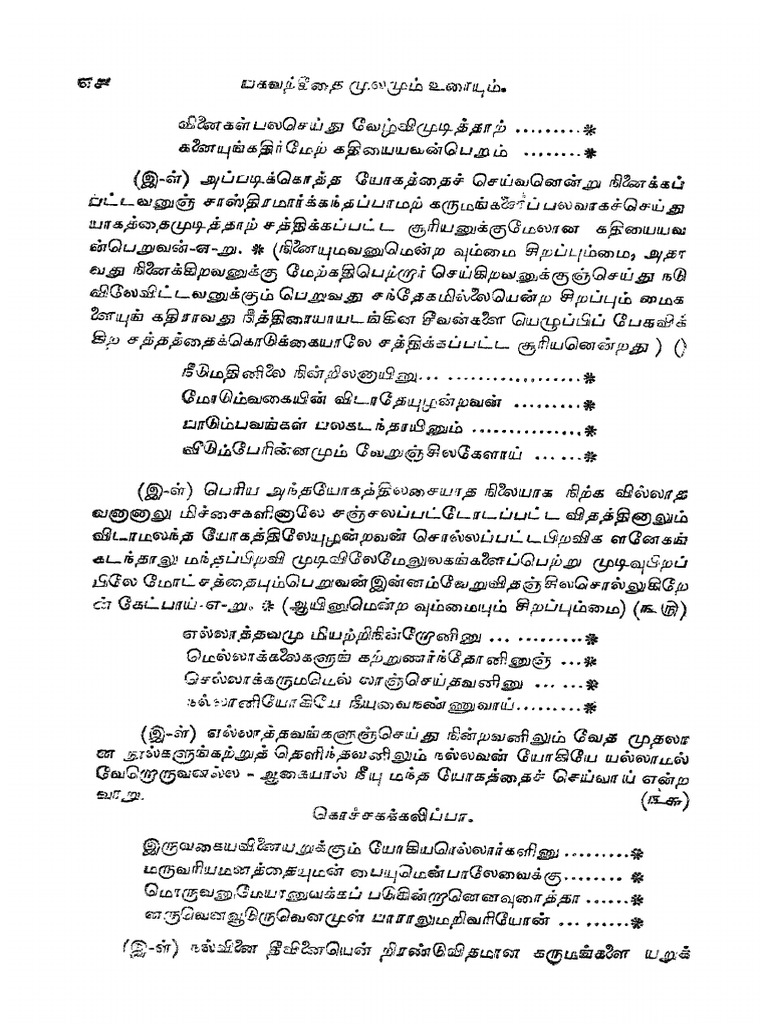 பகவற்கீதை மூலமும் உரையும்.
வினைகள்பலசெய்து வேழ்விமுடித்தாற் .........*
கனையுங்கதிர்மேற் கதியையவன்பெறும் .........*
(இ-ள்) அப்படிக்கொத்த யோகத்தைச் செய்வனென்று நினைக்கப்
பட்டவனுஞ் சாஸ்திரமார்க்கந்தப்பாமற் கருமங்களைப்பலவாகச்செய்து
யாகத்தைமுடித்தாற் சத்திக்கப்பட்ட சூரியனுக்குமேலான கதியையவ
ன்பெறுவன்-எ-று. * (நினையுமவனுமென்ற வும்மை சிறப்பும்மை, அதா
வது நினைக்கிறவனுக்கு மேற்கதிபெற்றூர் செய்கிறவனுக்குஞ்செய்து நடு
விலேவிட்டவனுக்கும் பெறுவது சந்தேகமில்லையென்ற சிறப்பும் மைக
னையுங் கதிராவது நித்திரையாயடங்கின சீவன்களை யெழுப்பிப் பேசுவிக்
கிற சத்தத்தைக்கொடுக்கையாலே சத்திக்கப்பட்ட சூரியனென்றது ) ()
நீடுமதினிலை நின்றிலனாயினு... ..................*
மோடும்வகையின் விடாதேயுழன்றவன் .........*
பாடும்பவங்கள் பலகடந்தாயினும் ...............*
வீடும்பேரின்னமும் வேறுஞ்சிலகேளாய் ... ...*
(இ-ள்) பெரிய அந்தயோகத்திலசையாத நிலையாக நிற்க வில்லாத
வனானாலு மிச்சைகளினாலே சஞ்சலப்பட்டோடப்பட்ட விதத்தினாலும்
விடாமலந்த யோகத்திலேயுழன்றவன் சொல்லப்பட்டபிறவிக ளனேகங்
கடந்தாலு மந்தப்பிறவி முடிவிலேமேலுலகங்களைப்பெற்று முடிவுபிறப்
பிலே மோட்சத்தையும்பெறுவன்இன்னம்வேறுவிதஞ்சிலசொல்லுகிறே
ன் கேட்பாய்-எ-று. * (ஆயினுமென்ற வும்மையும் சிறப்பும்மை)
எல்லாத்தவமு மியற்றிநின்றோனினு ... .........*
மெல்லாக்கலைகளுங் கற்றுணர்ந்தோனினுஞ் ...*
செல்லாக்கருமமெல் லாஞ்செய்தவனினு ... ...*
நல்லானியோகியே நீயுவைநண்ணுவாய்.........*
(இ-ள்) எல்லாத்தவங்களுஞ்செய்து நின்றவனிலும் வேத முதலா
ன நூல்களுங்கற்றுத் தெளிந்தவனிலும் நல்லவன் யோகியே யல்லாமல்
வேறொருவனல்ல - ஆகையால் நீயு மந்த யோகத்தைச் செய்வாய் என்ற
வாறு.
கொச்சகக்கலிப்பா.
இருவகையவினையறுக்கும் யோகியரெல்லார்களினு .........*
மருவரியமனத்தையுமன் பையுமென்பாலேவைக்கு.........*
மொருவனுமேயானுவக்கப் படுகின்றானெனவுரைத்தா ......*
னருவெனவுருவெனமுன் பாராலுமறிவரியோன் ... ......*
(இ-ள்) நல்வினை தீவினையென் றிரண்டுவிதமான கருமங்களை யறுக்